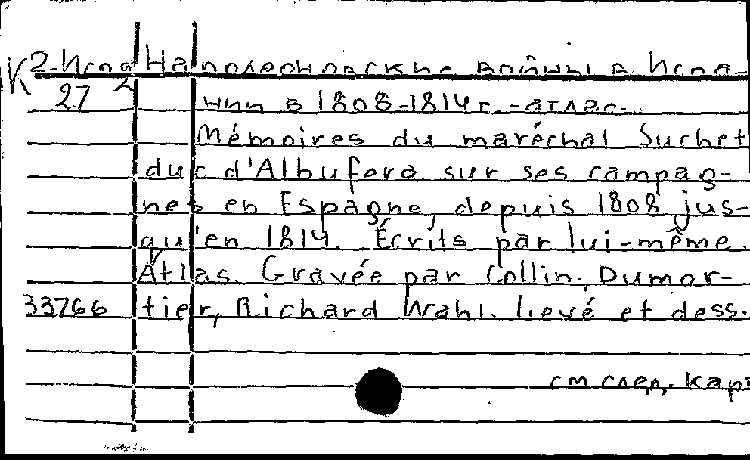 К 2-Испа Наполеоновские войны в Испа-
27 2 нии в 1808-1814г. - атлас.
Mémoires du maréchal Suchet
duc d'Albufera sur ses campag-
nes en Espagne, depuis 1808 jus-
qu'en 1814. Écrits par lui-même.
Atlas. Gravée par Collin, Dumor-
33766 tier, Richard Wahl. levé et dess.
см. след. карт